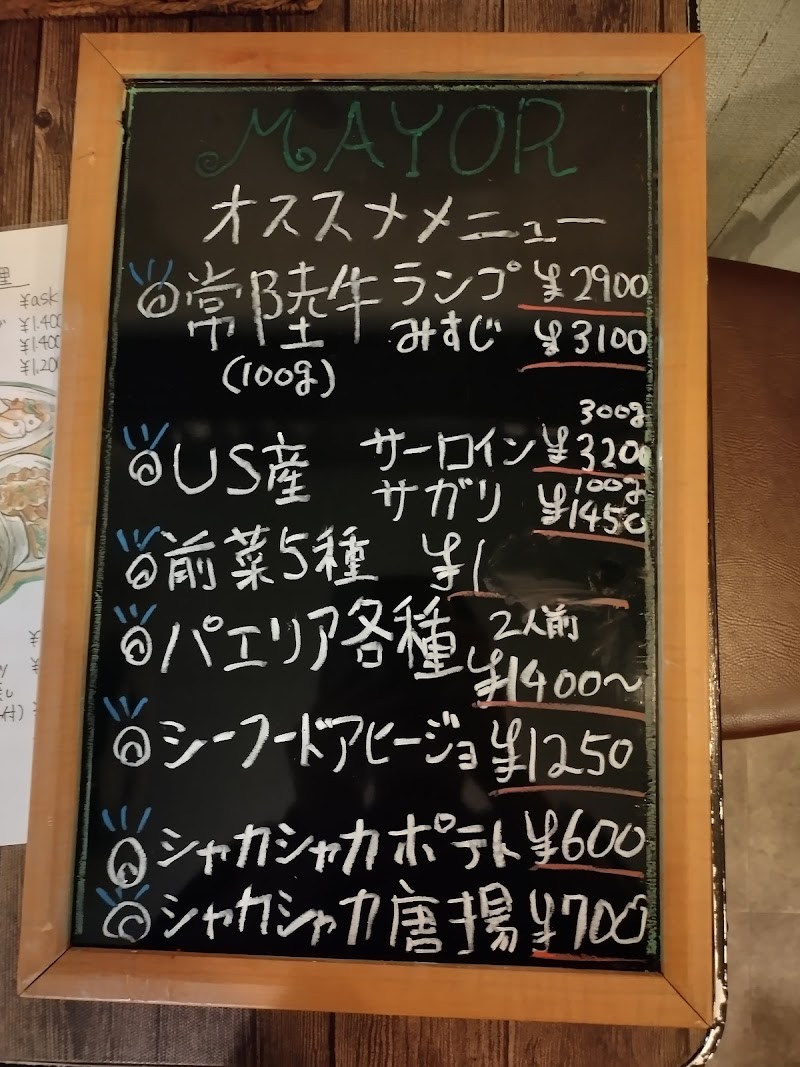 MAYOR
オススメメニュー
◎常陸牛 ランプ ¥2900
(100g) みすじ ¥3100
300g
◎US産 サーロイン ¥3200
100g
サガリ ¥1450
◎前菜5種 ¥1
◎パエリア各種 2人前
¥1400〜
◎シーフードアヒージョ ¥1250
◎シャカシャカポテト ¥600
◎シャカシャカ唐揚 ¥700
¥ask
¥1.400
¥1.400
¥1.200